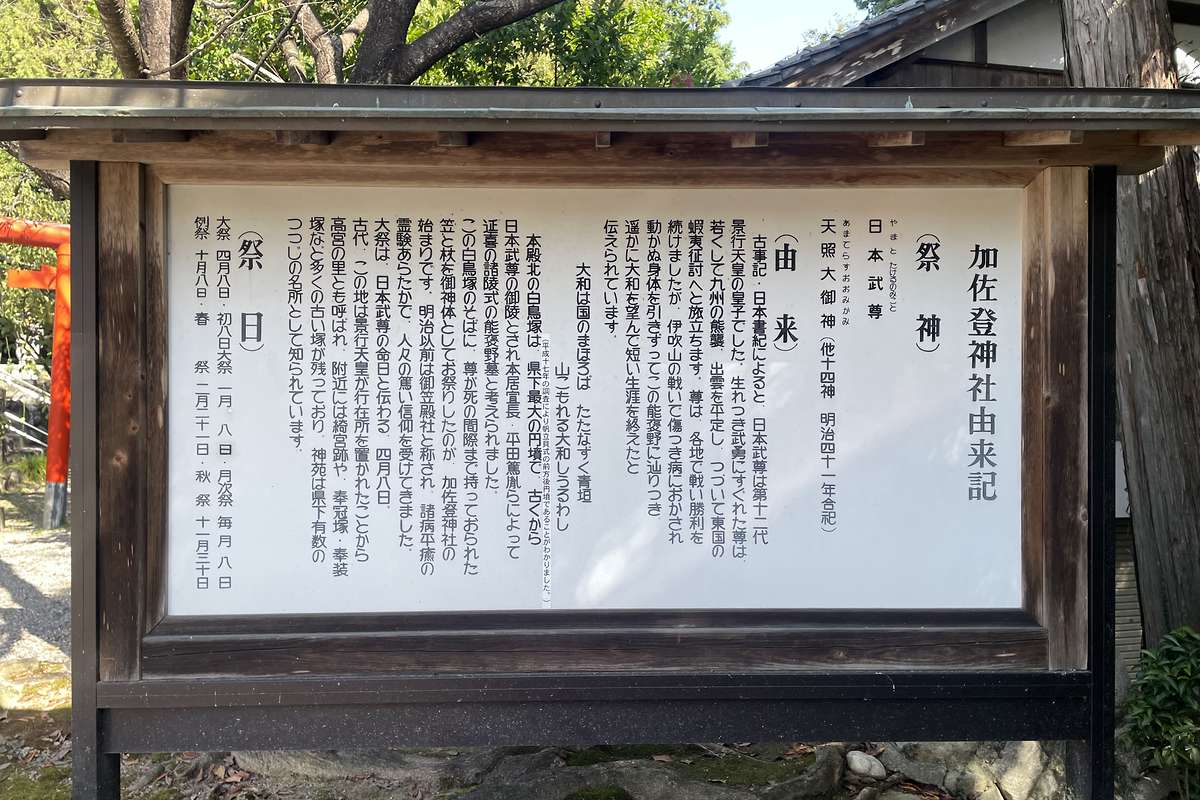 加佐登神社由来記
(祭 神)
やまと たけるのみこと
日本武尊
あまてらすおおみかみ
天照大御神(他十四神 明治四十一年合祀)
(由 来)
古事記・日本書紀によると、日本武尊は第十二代
景行天皇の皇子でした。生れつき武勇にすぐれた尊は、
若くして九州の熊襲、出雲を平定し、つづいて東国の
蝦夷征討へと旅立ちます。尊は、各地で戦い勝利を
続けましたが、伊吹山の戦いで傷つき病におかされ
動かぬ身体を引きずってこの能褒野に辿りつき
遥かに大和を望んで短い生涯を終えたと
伝えられています。
大和は国のまほろば たたなずく青垣
山こもれる大和しうるわし
(平成十七年の調査により帆立貝式の前方後円墳であることがわかりました。)
本殿北の白鳥塚は、県下最大の円墳で、古くから
日本武尊の御陵とされ本居宣長・平田篤胤らによって
延喜の諸陵式の能褒野墓と考えられました。
この白鳥塚のそばに、尊が死の間際まで持っておられた
笠と杖を御神体としてお祭りしたのが、加佐登神社の
始まりです。明治以前は御笠殿社と称され、諸病平癒の
霊験あらたかで、人々の篤い信仰を受けてきました。
大祭は、日本武尊の命日と伝わる、四月八日。
古代、この地は景行天皇が行在所を置かれたことから
高宮の里とも呼ばれ、附近には綺宮跡や、奉冠塚・奉装
塚など多くの古い塚が残っており、神苑は県下有数の
つつじの名所として知られています。
(祭 日)
大祭 四月八日・初八日大祭 一月 八 日・月次祭 毎月 八 日
例祭 十月八日・春 祭 二月二十一日・秋 祭 十一月三十日